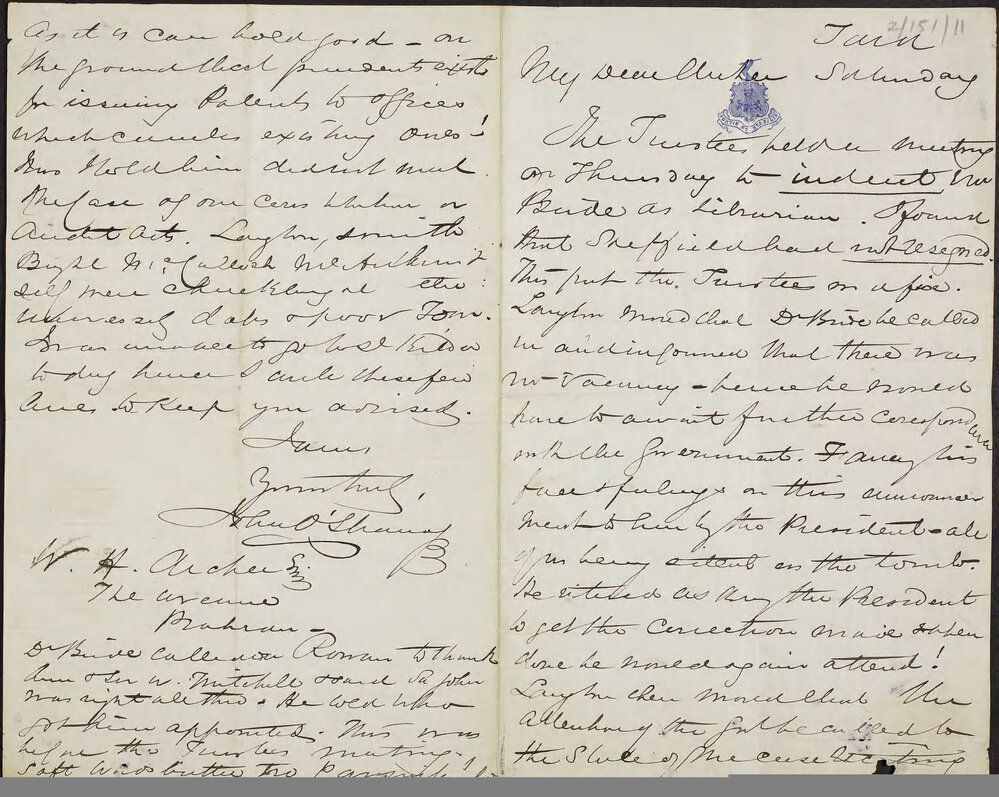 2/151/11
Saturday
My Dear Archer
The Trustees held a meeting
on Thursday to indent Mr
Bride as Librarian. I found
that Sheffield had not resigned.
This put the Trustees in a fix.
Langton moved that Dr Bride be called
in and informed that there was
no vacancy - hence he would
have to await further correspondence
with the Government. Fancy his
face & feelings on this announce
ment to him by the President - all
of us being silent as the tomb.
He retired asking the President
to get the correction made & when
done he would again attend!
Langton then moved that the
attention of the Govt be called to
the State of the case
As it is can hold good - on
the ground that precedents exist
for issuing Patents to offices
which cumulate existing ones!
I told him did not meet
the case of our
Audit Acts. Langton, Smith
self were chuckling at the
poor Tom.
I was unable to go to St Kilda
to day hence I write these few
lines to keep you advised.
I am,
Yours truly,
John O'Shanassy
W. H. Archer Esq
The Avenue
Prahran -
Dr Bride called on Rowan to thank
him & Sir W. Mitchell & said Sir John
was right all thro. He who
got him appointed. This was
before the Trustees meeting.
Soft words butter no Parsnips!